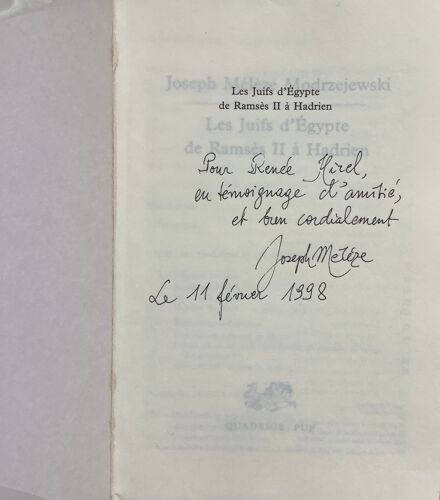 Joseph Mélèze Modrzejewski
Les Juifs d'Égypte
de Ramsès II à Hadrien
Les Juifs d'Égypte
de Ramsès II à Hadrien
Pour Renée Hirel,
en témoignage d'amitié,
et bien cordialement
Joseph Mélèze
Le 11 février 1998
QUADRIGE / PUF